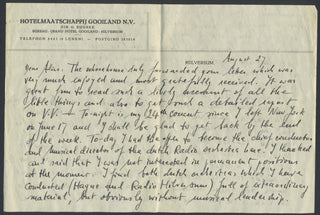 HOTELMAATSCHAPPIJ GOOILAND N.V.
DIR. G. REUSKE
BUREAU: GRAND HOTEL GOOILAND - HILVERSUM
TELEFOON 8441 (4 LIJNEN) - POSTGIRO
HILVERSUM, August 27
Dear Alice. The Concertbureau duly forwarded your letter which was
very much enjoyed and most gratefully received. It was
great fun to read such a lively account of all the
little things and also to get such a detailed report
on V.V. — To-night is my 24th concert since I left New York
on June 17 and I shall be glad to get back by the end
of the week. To-day I had the offer to become the chief conductor
and musical director of the Dutch Radio orchestra here! I thanked
and said that I was not interested in permanent positions
at the moment. I found both dutch orchestras which I have
conducted (Hague and Radio Hilversum) full of extraordinary
material, but obviously without musical leadership.